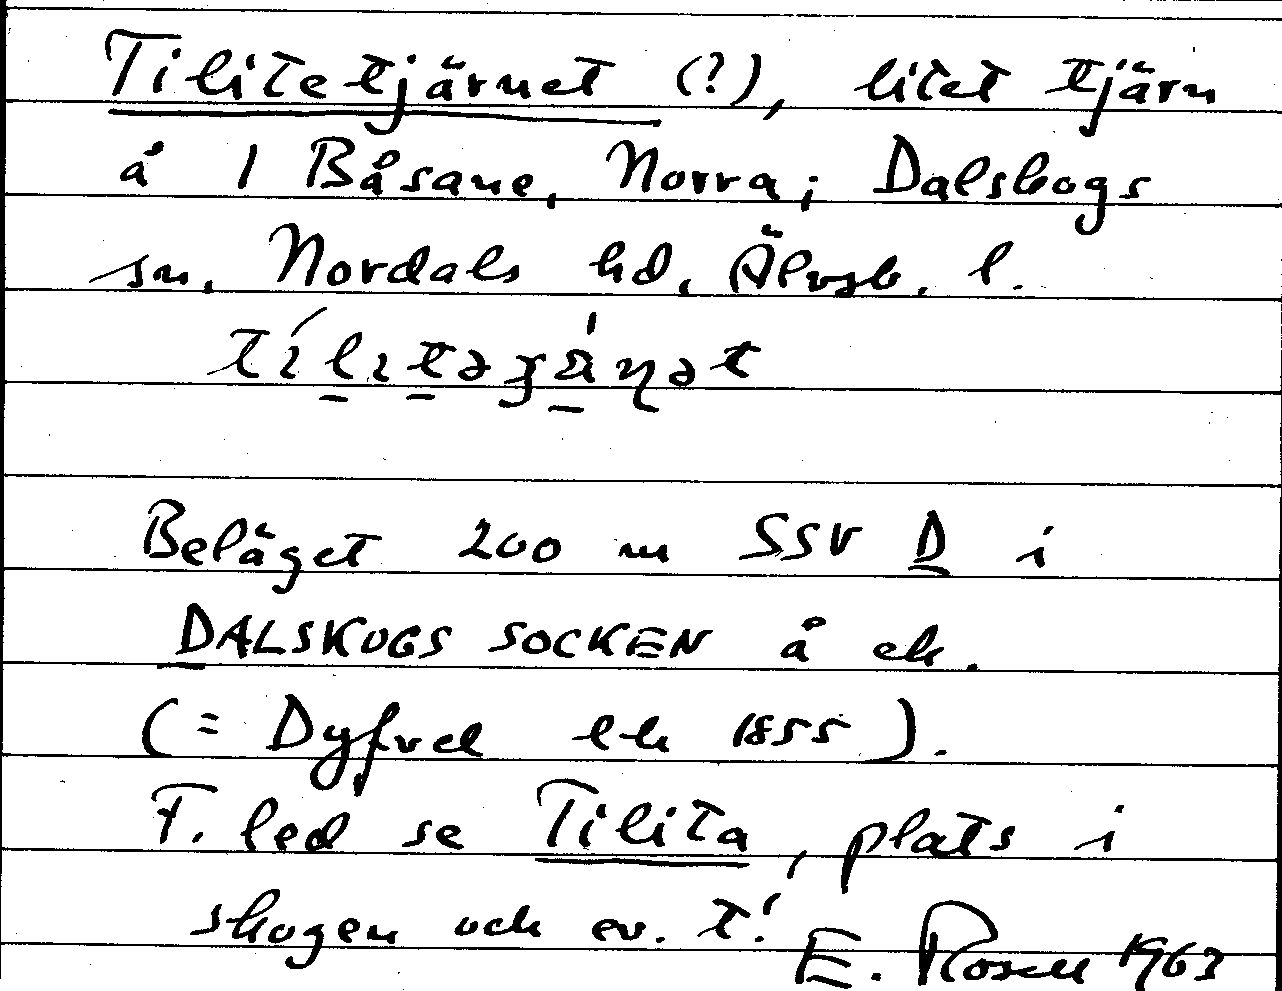 Tilitetjärnet (?), litet tjärn
å 1 Båsane, Norra; Dalskogs
sn, Nordals hd, Älvsb. l.
Beläget 200 m SSV D i
DALSKOGS SOCKEN å ek.
(= Dyfvel ek 1855).
F. led se Tilita, plats i
skogen och ev. t!
E. Rosell 1963